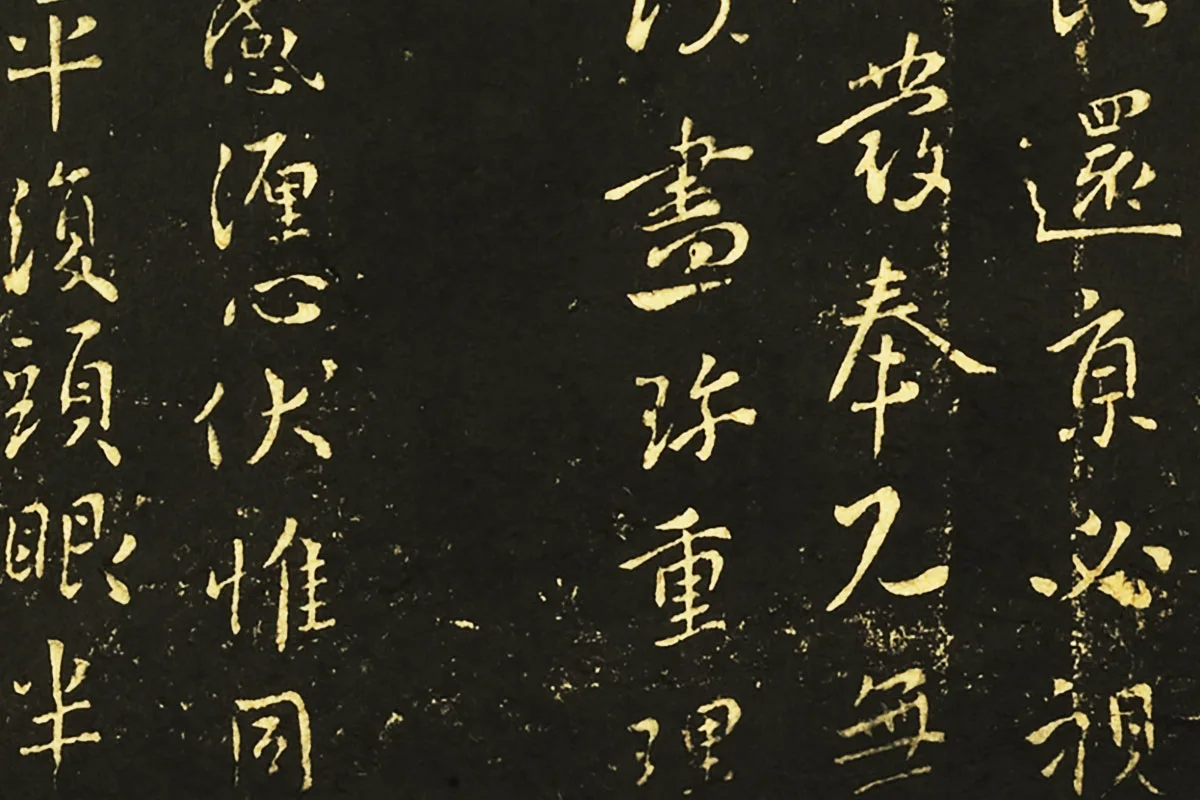 還京必視
發奉無
畫珎重理
感纏心伏惟同
平復頭眼半